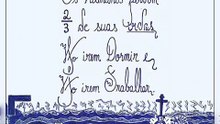 Os humanos perdem
2/3 de suas vidas
Ao irem Dormir e,
Ao irem Trabalhar.